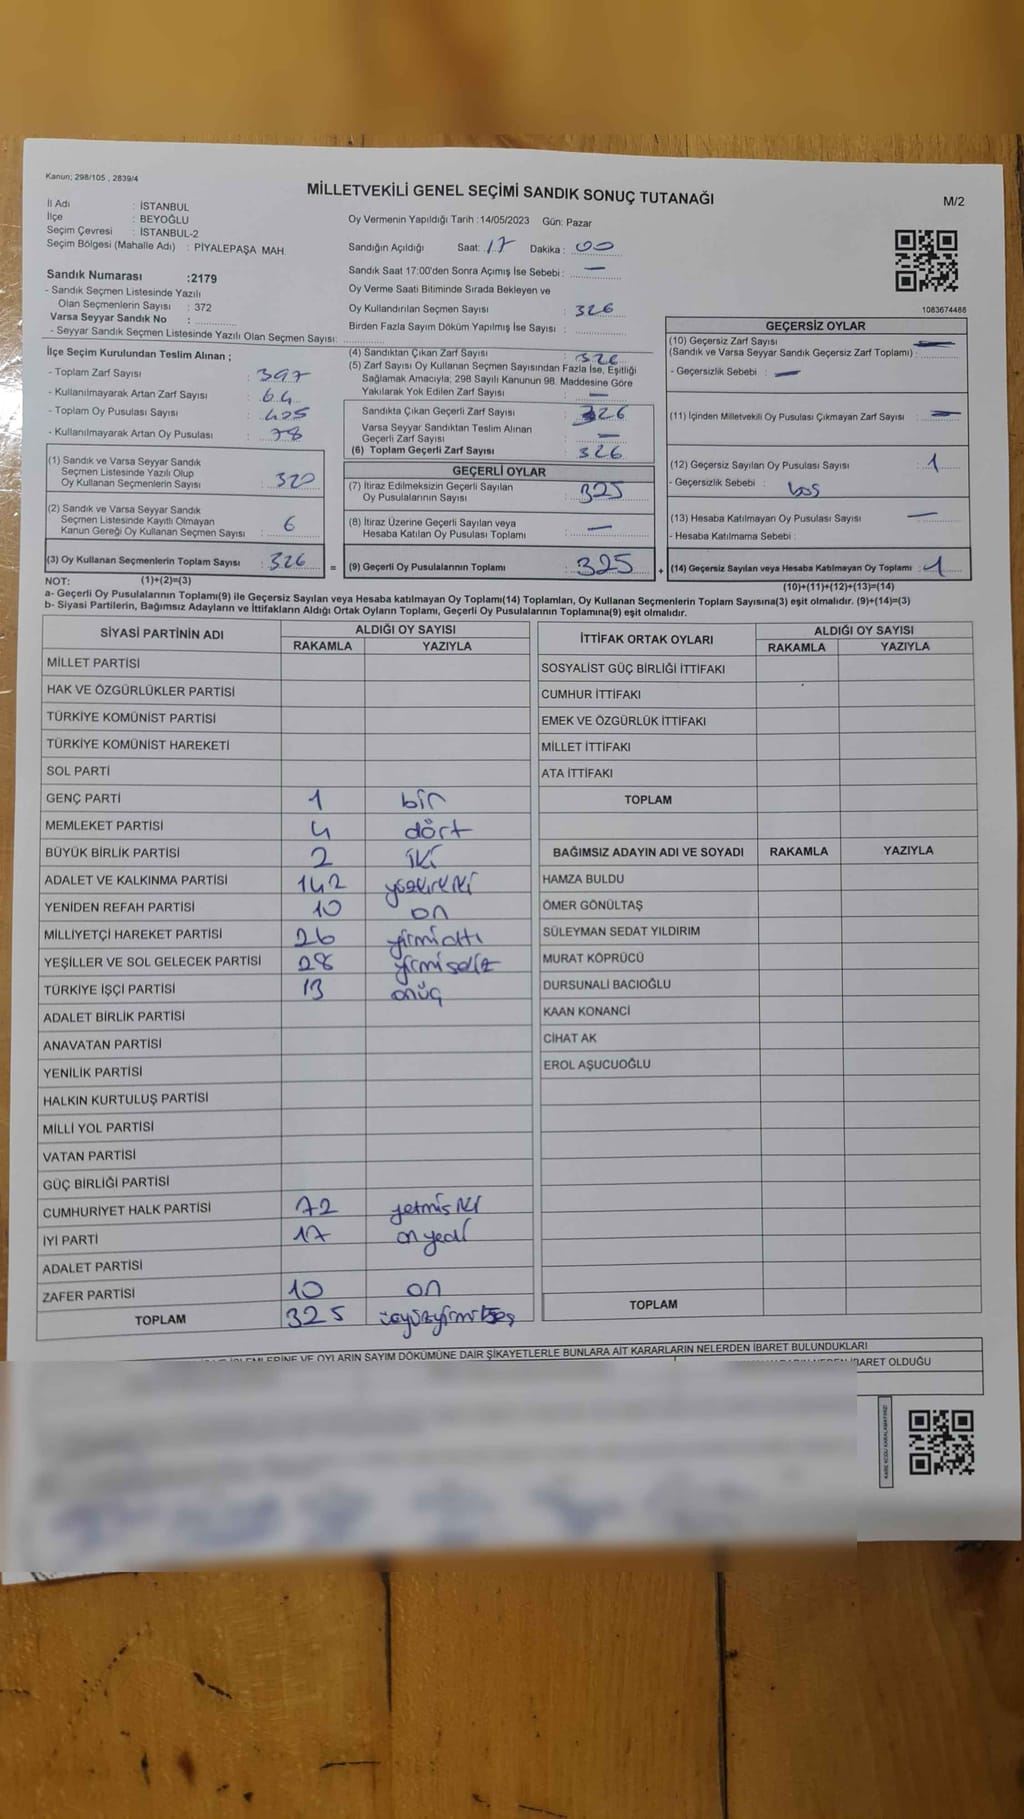 Kanun; 298/105 , 2839/4
MİLLETVEKİLİ GENEL SEÇİMİ SANDIK SONUÇ TUTANAĞI
M/2
İl Adı : İSTANBUL
İlçe : BEYOĞLU
Seçim Çevresi : İSTANBUL-2
Seçim Bölgesi (Mahalle Adı) : PİYALEPAŞA MAH.
Sandık Numarası :2179
- Sandık Seçmen Listesinde Yazılı
Olan Seçmenlerin Sayısı : 372
Varsa Seyyar Sandık No :
- Seyyar Sandık Seçmen Listesinde Yazılı Olan Seçmen Sayısı:
Oy Vermenin Yapıldığı Tarih :14/05/2023 Gün: Pazar
Sandığın Açıldığı Saat: 17 Dakika : 00
Sandık Saat 17:00'den Sonra Açımış İse Sebebi : —
Oy Verme Saati Bitiminde Sırada Bekleyen ve
Oy Kullandırılan Seçmen Sayısı : 326
Birden Fazla Sayım Döküm Yapılmış İse Sayısı :
1083674486
İlçe Seçim Kurulundan Teslim Alınan ;
- Toplam Zarf Sayısı : 397
- Kullanılmayarak Artan Zarf Sayısı : 64
- Toplam Oy Pusulası Sayısı : 425
- Kullanılmayarak Artan Oy Pusulası : 78
(1) Sandık ve Varsa Seyyar Sandık
Seçmen Listesinde Yazılı Olup
Oy Kullanan Seçmenlerin Sayısı : 320
(2) Sandık ve Varsa Seyyar Sandık
Seçmen Listesinde Kayıtlı Olmayan
Kanun Gereği Oy Kullanan Seçmen Sayısı : 6
(3) Oy Kullanan Seçmenlerin Toplam Sayısı : 326 =
(4) Sandıktan Çıkan Zarf Sayısı : 326
(5) Zarf Sayısı Oy Kullanan Seçmen Sayısından Fazla İse, Eşitliği
Sağlamak Amacıyla; 298 Sayılı Kanunun 98. Maddesine Göre
Yakılarak Yok Edilen Zarf Sayısı : —
Sandıkta Çıkan Geçerli Zarf Sayısı : 326
Varsa Seyyar Sandıktan Teslim Alınan
Geçerli Zarf Sayısı : —
(6) Toplam Geçerli Zarf Sayısı : 326
GEÇERLİ OYLAR
(7) İtiraz Edilmeksizin Geçerli Sayılan
Oy Pusulalarının Sayısı : 325
(8) İtiraz Üzerine Geçerli Sayılan veya
Hesaba Katılan Oy Pusulası Toplamı : —
(9) Geçerli Oy Pusulalarının Toplamı : 325 +
GEÇERSİZ OYLAR
(10) Geçersiz Zarf Sayısı
(Sandık ve Varsa Seyyar Sandık Geçersiz Zarf Toplamı) : —
- Geçersizlik Sebebi : —
(11) İçinden Milletvekili Oy Pusulası Çıkmayan Zarf Sayısı : —
(12) Geçersiz Sayılan Oy Pusulası Sayısı : 1
- Geçersizlik Sebebi : boş
(13) Hesaba Katılmayan Oy Pusulası Sayısı : —
- Hesaba Katılmama Sebebi :
(14) Geçersiz Sayılan veya Hesaba Katılmayan Oy Toplamı : 1
NOT: (1)+(2)=(3)
(10)+(11)+(12)+(13)=(14)
a- Geçerli Oy Pusulalarının Toplamı(9) ile Geçersiz Sayılan veya Hesaba katılmayan Oy Toplamı(14) Toplamları, Oy Kullanan Seçmenlerin Toplam Sayısına(3) eşit olmalıdır. (9)+(14)=(3)
b- Siyasi Partilerin, Bağımsız Adayların ve İttifakların Aldığı Ortak Oyların Toplamı, Geçerli Oy Pusulalarının Toplamına(9) eşit olmalıdır.
SİYASİ PARTİNİN ADI ALDIĞI OY SAYISI
RAKAMLA YAZIYLA
MİLLET PARTİSİ
HAK VE ÖZGÜRLÜKLER PARTİSİ
TÜRKİYE KOMÜNİST PARTİSİ
TÜRKİYE KOMÜNİST HAREKETİ
SOL PARTİ
GENÇ PARTİ 1 bir
MEMLEKET PARTİSİ 4 dört
BÜYÜK BİRLİK PARTİSİ 2 iki
ADALET VE KALKINMA PARTİSİ 142 yüzkırkiki
YENİDEN REFAH PARTİSİ 10 on
MİLLİYETÇİ HAREKET PARTİSİ 26 yirmialtı
YEŞİLLER VE SOL GELECEK PARTİSİ 28 yirmisekiz
TÜRKİYE İŞÇİ PARTİSİ 13 onüç
ADALET BİRLİK PARTİSİ
ANAVATAN PARTİSİ
YENİLİK PARTİSİ
HALKIN KURTULUŞ PARTİSİ
MİLLİ YOL PARTİSİ
VATAN PARTİSİ
GÜÇ BİRLİĞİ PARTİSİ
CUMHURİYET HALK PARTİSİ 72 yetmiş iki
İYİ PARTİ 17 on yedi
ADALET PARTİSİ
ZAFER PARTİSİ 10 on
TOPLAM 325 üçyüzyirmibeş
İTTİFAK ORTAK OYLARI ALDIĞI OY SAYISI
RAKAMLA YAZIYLA
SOSYALİST GÜÇ BİRLİĞİ İTTİFAKI
CUMHUR İTTİFAKI
EMEK VE ÖZGÜRLÜK İTTİFAKI
MİLLET İTTİFAKI
ATA İTTİFAKI
TOPLAM
BAĞIMSIZ ADAYIN ADI VE SOYADI RAKAMLA YAZIYLA
HAMZA BULDU
ÖMER GÖNÜLTAŞ
SÜLEYMAN SEDAT YILDIRIM
MURAT KÖPRÜCÜ
DURSUNALİ BACIOĞLU
KAAN KONANCİ
CİHAT AK
EROL AŞUCUOĞLU
TOPLAM
VE OYLARIN SAYIM DÖKÜMÜNE DAİR ŞİKAYETLERLE BUNLARA AİT KARARLARIN NELERDEN İBARET BULUNDUKLARI
İBARET OLDUĞU
KARE KODU KARALAMAYINIZ!